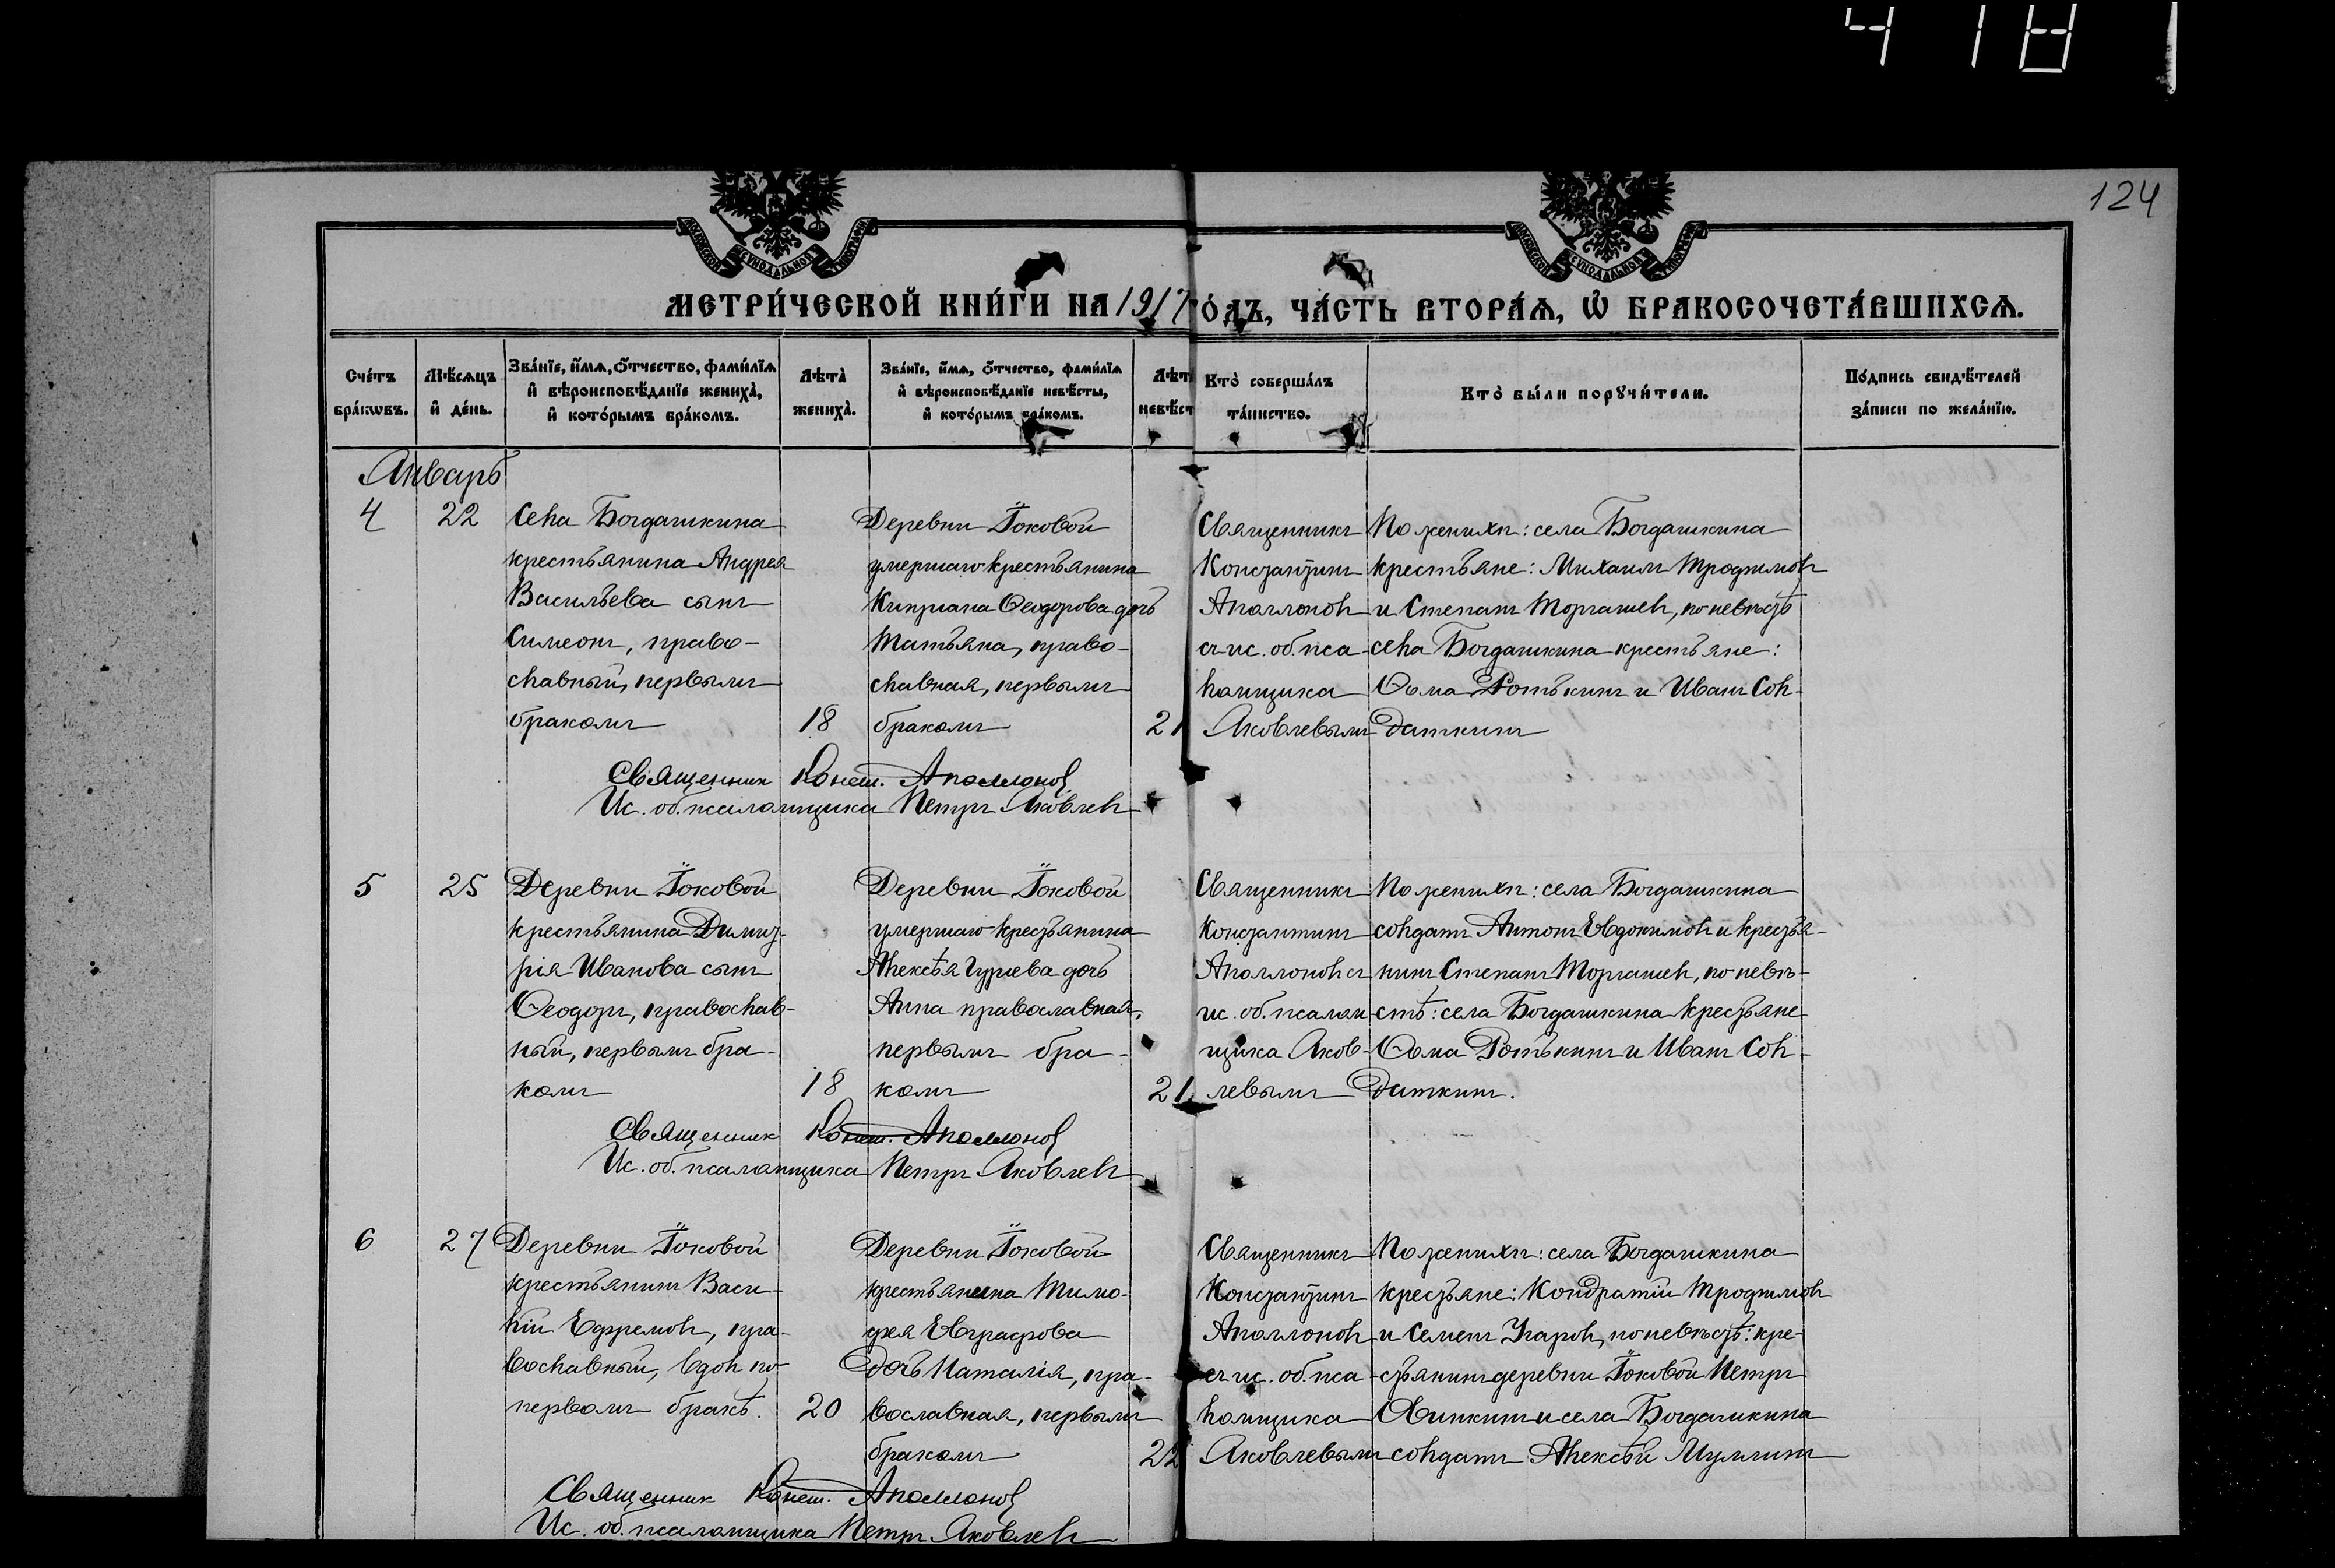 4 1 8
124
МЕТРИ́ЧЕСКОЙ КНИ́ГИ НА 1917 ГО́ДЪ, ЧА́СТЬ ВТОРА́Ѧ, Ѡ҆ БРАКОСОЧЕТА́ВШИХСѦ.
Сче́тъ бра́кѡвъ.
Мѣ́сѧцъ и҆ де́нь.
Зва́нїе, и҆́мѧ, ѻ҆́тчество, фами́лїѧ и҆ вѣроисповѣ́данїе жениха̀, и҆ кото́рымъ бра́комъ.
Лѣта̀ жениха̀.
Зва́нїе, и҆́мѧ, ѻ҆́тчество, фами́лїѧ и҆ вѣроисповѣ́данїе невѣ́сты, и҆ кото́рымъ бра́комъ.
Лѣт невѣ́ст
Кто̀ соверша́лъ та́инство.
Кто̀ бы́ли порꙋчи́тели.
По́дпись свидѣ́телей за́писи по жела́нїю.
Январь
4
22
Села Богдашкина
крестьянина Андрея
Васильева сынъ
Симеонъ, право-
славный, первымъ
бракомъ
18
Деревни Іоковой
умершаго крестьянина
Кипріана Ѳеодорова дочь
Татьяна, право-
славная, первымъ
бракомъ
21
Священникъ
Константинъ
Аполлоновъ
съ ис. об. пса-
ломщика
Яковлевымъ
По женихѣ: села Богдашкина
крестьяне: Михаилъ Трофимовъ
и Степанъ Торгашевъ, по невѣстѣ
села Богдашкина крестьяне:
Ѳома Ротькинъ и Иванъ Сол-
даткинъ
Священник Конст. Аполлонов
Ис. об. псаломщика Петръ Яковлевъ
5
25
Деревни Іоковой
крестьянина Димит-
рія Иванова сынъ
Ѳеодоръ, православ-
ный, первымъ бра-
комъ
18
Деревни Іоковой
умершаго крестьянина
Алексѣя Гурьева дочь
Анна православная,
первымъ бра-
комъ
21
Священникъ
Константинъ
Аполлоновъ съ
ис. об. псалом-
щика Яков-
левымъ
По женихѣ: села Богдашкина
солдатъ Антонъ Евдокимовъ и крестья-
нинъ Степанъ Торгашевъ, по невѣ-
стѣ: села Богдашкина крестьяне
Ѳома Ротькинъ и Иванъ Сол-
даткинъ.
Священник Конст. Аполлонов
Ис. об. псаломщика Петръ Яковлевъ
6
27
Деревни Іоковой
крестьянинъ Васи-
лій Ефремовъ, пра-
вославный, вдовъ по
первомъ бракѣ.
20
Деревни Іоковой
крестьянина Тимо-
фея Евграфова
дочь Наталія, пра-
вославная, первымъ
бракомъ
22
Священникъ
Константинъ
Аполлоновъ
съ ис. об. пса-
ломщика
Яковлевымъ
По женихѣ: села Богдашкина
крестьяне: Кондратій Трофимовъ
и Семенъ Угаровъ, по невѣстѣ: кре-
стьянинъ деревни Іоковой Петръ
Авинкинъ и села Богдашкина
солдатъ Алексѣй Муллинъ
Священник Конст. Аполлонов
Ис. об. псаломщика Петръ Яковлевъ